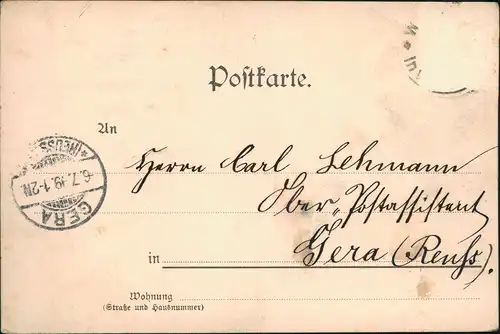 Postkarte.
An
Herrn Carl Lehmann
Ober-Postassistent
in Gera (Reuß).
Wohnung
(Straße und Hausnummer)
*(REUSS)
6.7. 1-2N.
GERA